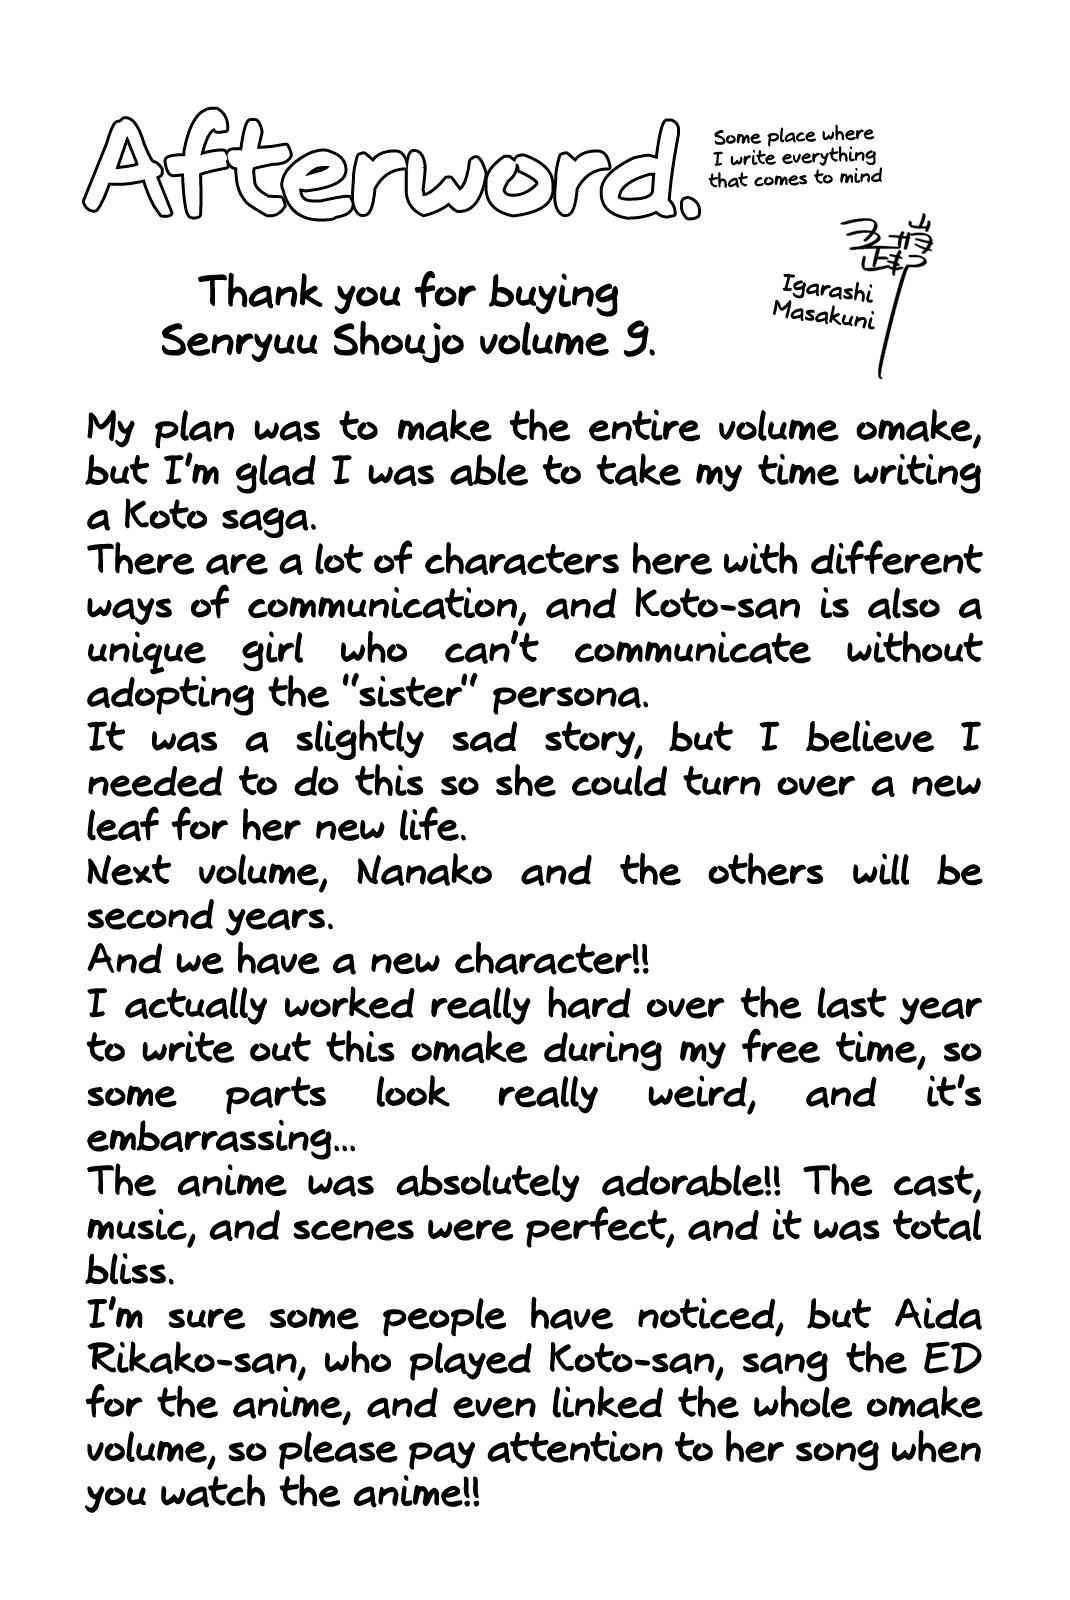 Afterword.
Some place where
I write everything
that comes to mind
Igarashi
Masakuni
Thank you for buying
Senryuu Shoujo volume 9.
My plan was to make the entire volume omake,
but I'm glad I was able to take my time writing
a Koto saga.
There are a lot of characters here with different
ways of communication, and Koto-san is also a
unique girl who can't communicate without
adopting the "sister" persona.
It was a slightly sad story, but I believe I
needed to do this so she could turn over a new
leaf for her new life.
Next volume, Nanako and the others will be
second years.
And we have a new character!!
I actually worked really hard over the last year
to write out this omake during my free time, so
some parts look really weird, and it's
embarrassing...
The anime was absolutely adorable!! The cast,
music, and scenes were perfect, and it was total
bliss.
I'm sure some people have noticed, but Aida
Rikako-san, who played Koto-san, sang the ED
for the anime, and even linked the whole omake
volume, so please pay attention to her song when
you watch the anime!!